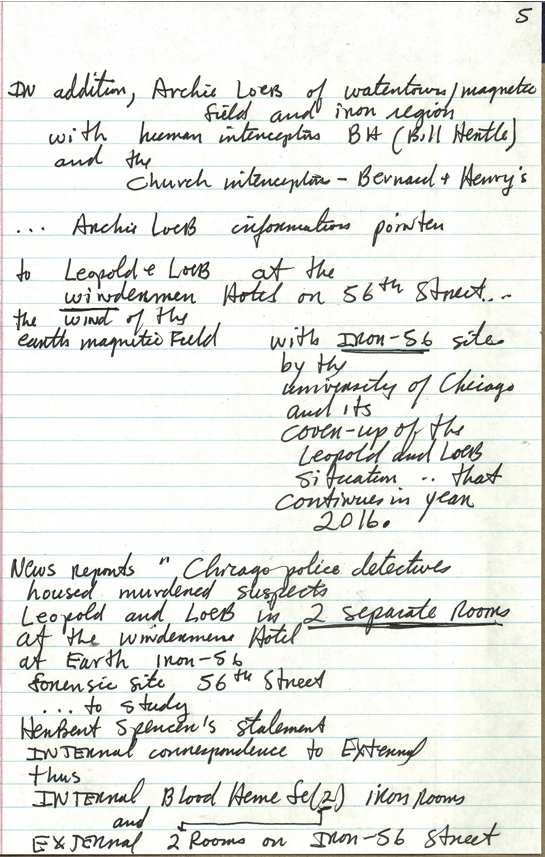 5
IN addition, Archie LOEB of watentown/magnetic
field and iron region
with human interceptors BH (Bill Hentle)
and the
Church interceptors - Bernard + Henry's
... Archie LOEB information pointen
to Leopold e LOEB at the
windenmen Hotel on 56th Street...
the wind of the
earths magnetic Field
with IRON-56 site
by the
university of Chicago
and its
coven-up of the
Leopold and LOEB
situation .. that
continues in year
2016.
News reports " Chicago police detectives
housed murdened suspects
Leopold and LOEB in 2 separate Rooms
at the windenmene Hotel
at Earth iron-56
forensic site 56th Street
... to study
Henbent Spencen's statement
INTERNAL connespondence to External
thus
INTERNAL Blood Heme Fe(2) iron rooms
and
EXTERNAL 2 Rooms on IRON-56 Street